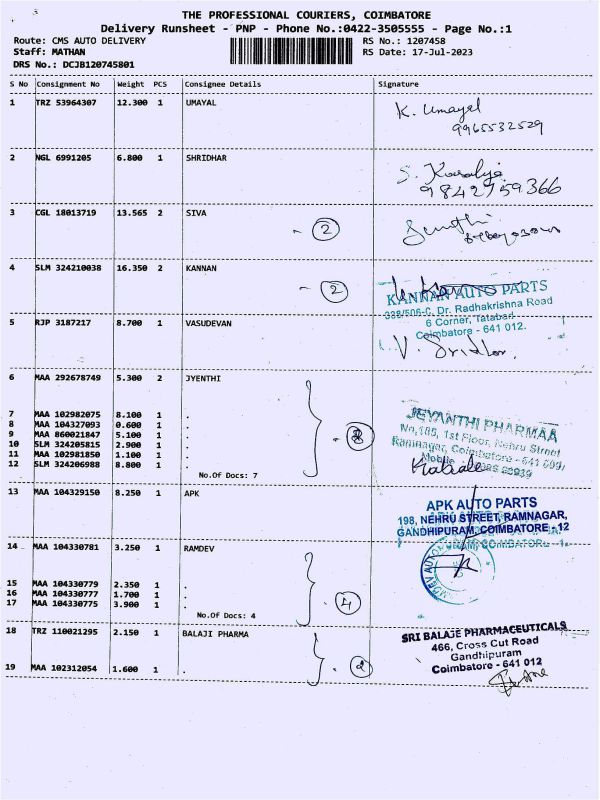 THE PROFESSIONAL COURIERS, COIMBATORE
Delivery Runsheet - PNP - Phone No.:0422-3505555 - Page No.:1
Route: CMS AUTO DELIVERY RS No.: 1207458
Staff: MATHAN RS Date: 17-Jul-2023
DRS No.: DCJB120745801
S No Consignment No Weight PCS Consignee Details Signature
1 TRZ 53964307 12.300 1 UMAYAL
K. Umayal
9965532529
2 NGL 6991205 6.800 1 SHRIDHAR
9842959366
3 CGL 18013719 13.565 2 SIVA
- 2
4 SLM 324210038 16.350 2 KANNAN
- 2
KANNAN AUTO PARTS
338/506-C, Dr. Radhakrishna Road
6 Corner, Tatabad
Coimbatore - 641 012.
5 RJP 3187217 8.700 1 VASUDEVAN
V. Sridhar.
6 MAA 292678749 5.300 2 JYENTHI
7 MAA 102982075 8.100 1 .
8 MAA 104327093 0.600 1 .
9 MAA 860021847 5.100 1 .
10 SLM 324205815 2.900 1 .
11 MAA 102981850 1.100 1 .
12 SLM 324206988 8.800 1 .
No.Of Docs: 7
8
JEYANTHI PHARMAA
No,185, 1st Floor, Nehru Street
Ramnagar, Coimbatore - 641 009
Mobile
13 MAA 104329150 8.250 1 APK
APK AUTO PARTS
198, NEHRU STREET, RAMNAGAR,
GANDHIPURAM, COIMBATORE - 12
14 MAA 104330781 3.250 1 RAMDEV
15 MAA 104330779 2.350 1 .
16 MAA 104330777 1.700 1 .
17 MAA 104330775 3.900 1 .
No.Of Docs: 4
4
18 TRZ 110021295 2.150 1 BALAJI PHARMA
19 MAA 102312054 1.600 1 .
2
SRI BALAJE PHARMACEUTICALS
466, Cross Cut Road
Gandhipuram
Coimbatore - 641 012